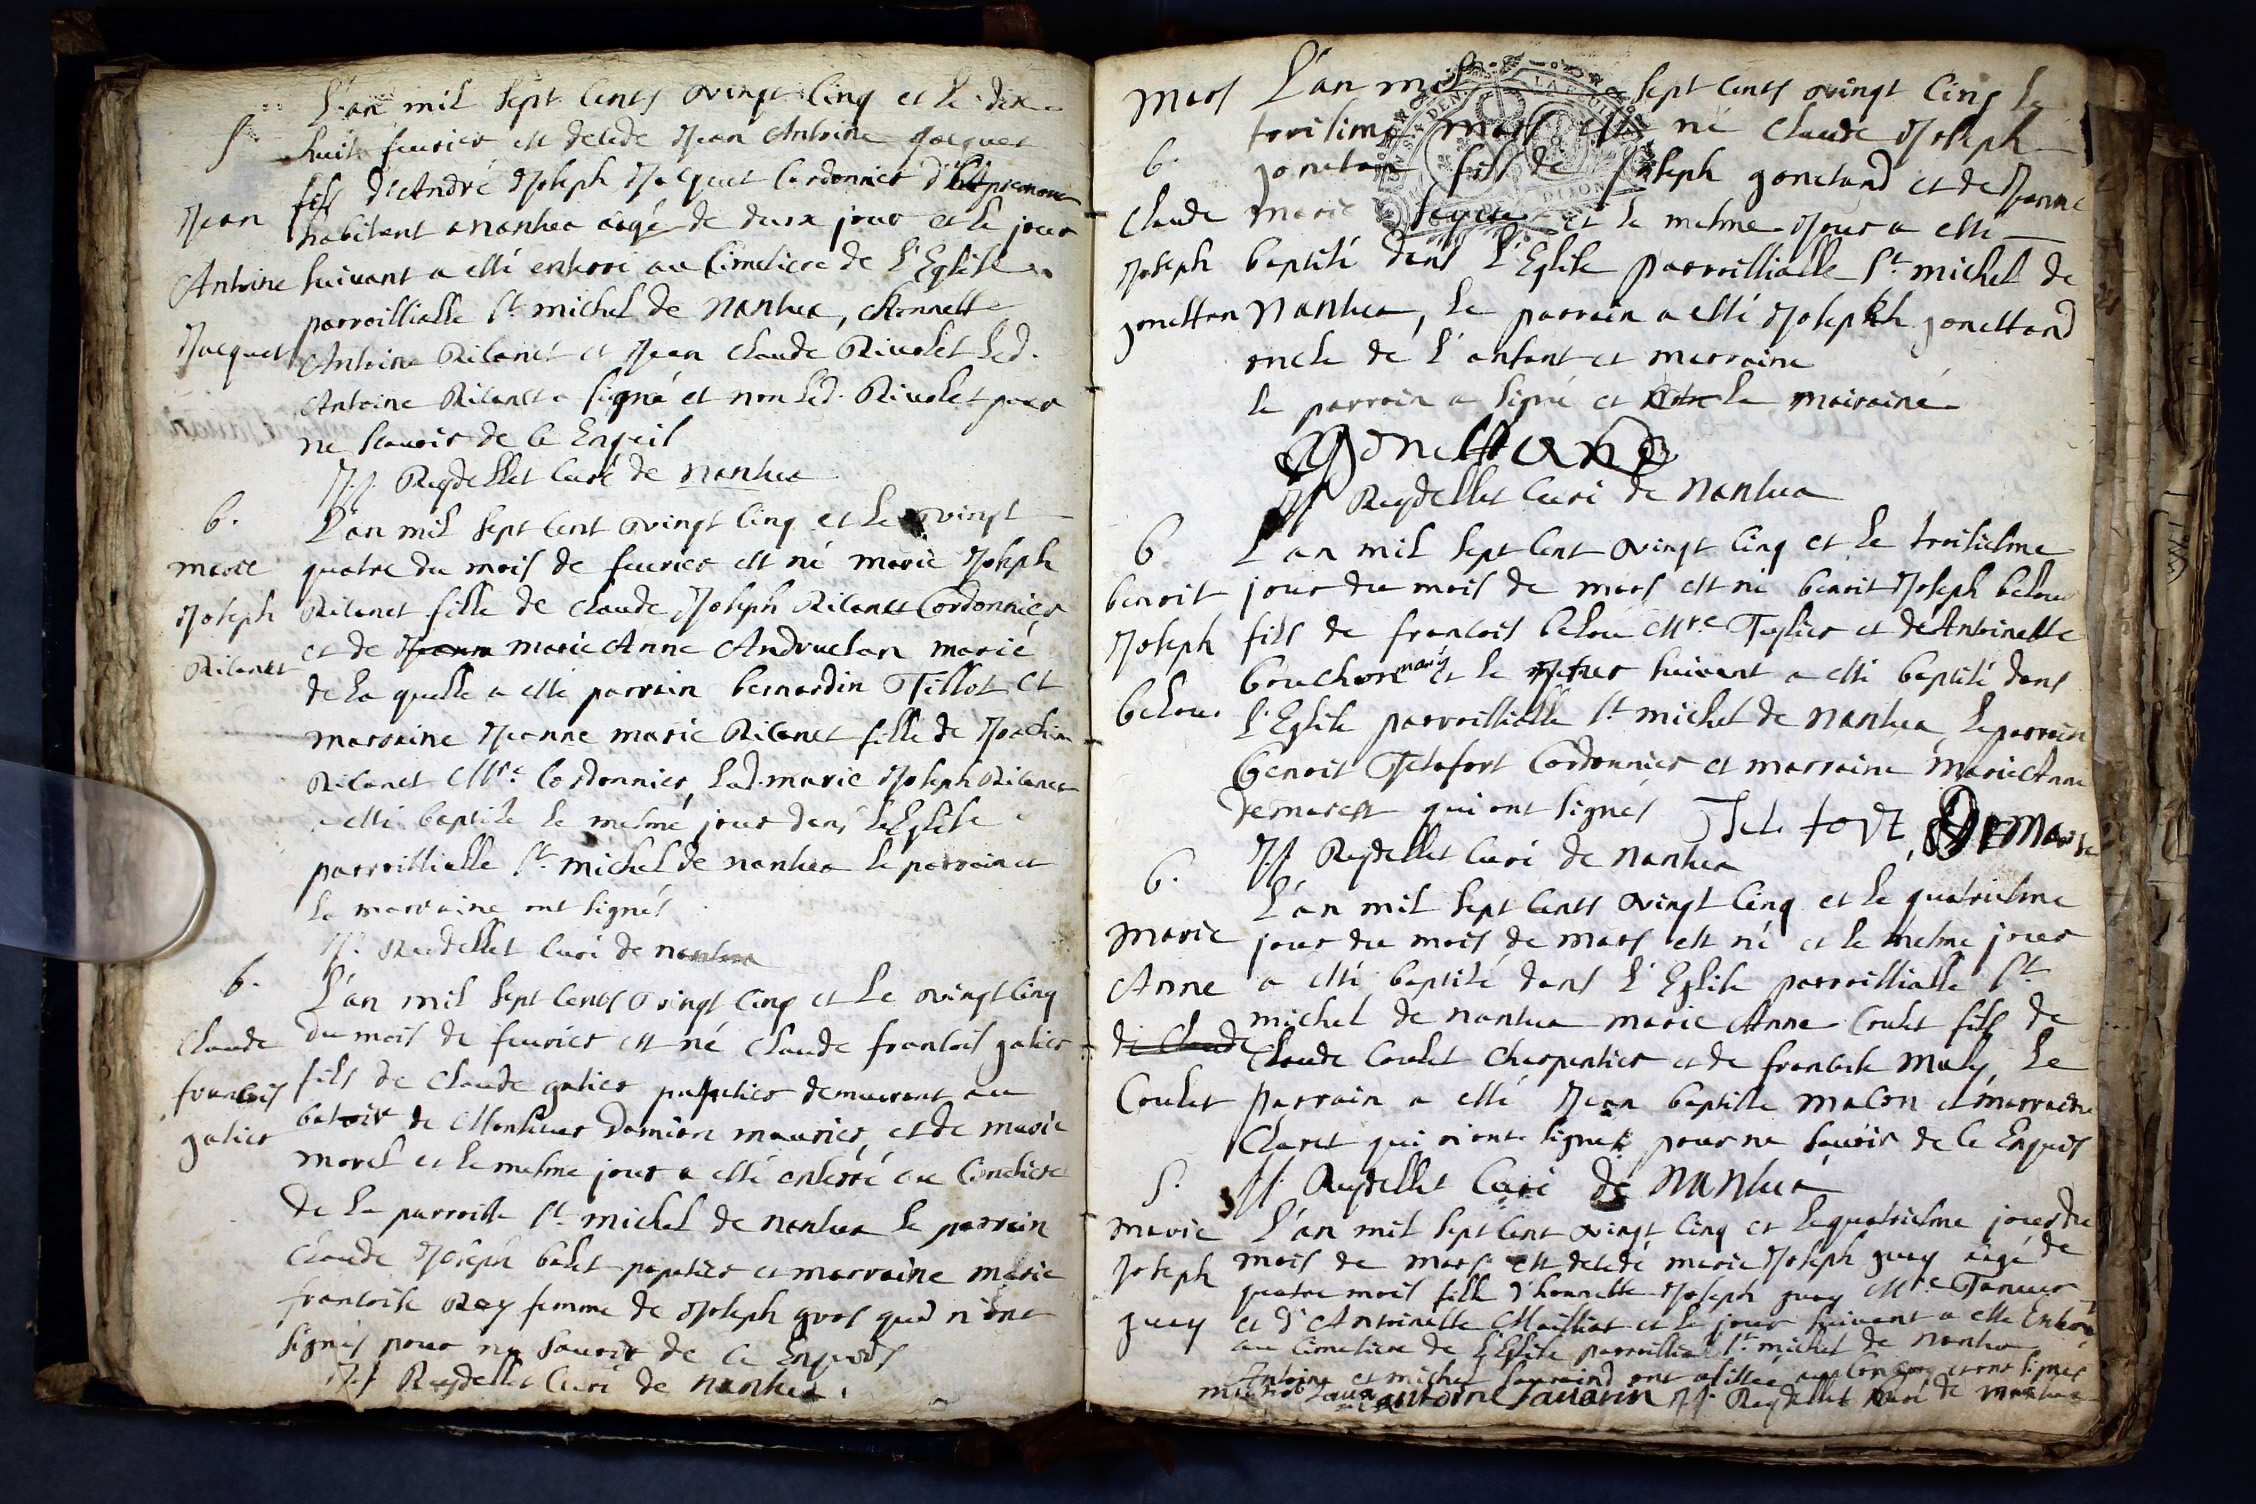 L'an mil sept cents vingt cinq et le dix
S huit feurier est decede Jean Antoine Jacquet
fils d'André Joseph Jacquet Cordonnier
Jean habitant a nantua aagé de deux jour et le jour
Antoine suivant a esté enterré au Cimetiere de l'Eglise
parroissialle St michel de Nantua, Honnette
Jacquet Antoine Rilanet et Jean Claude Rivolet led.
Antoine Rilanet a signé et non led. Rivolet pour
ne scauoir de ce Enquis
J.J. Reydellet Curé de nantua
b. L'an mil sept cent vingt cinq et le vingt
marie quatre du mois de feurier est né marie Joseph
Joseph Rilanet fille de Claude Joseph Rilanet Cordonnier
Rilanet et de Jeanne marie Anne Andruetan marié
de la quelle a esté parrain bernardin Tillot et
marraine Jeanne marie Rilanet fille de Joachim
Rilanet Mre. Cordonnier, lad. marie Joseph Rilanet
a esté baptisé le mesme jour dans l'Eglise
parroissialle St michel de nantua le parrain et
la marraine ont signés
J.J. Reydellet Curé de nantua
b. L'an mil sept cents vingt cinq et le vingt cinq
Claude du mois de feurier est né Claude francois galier
francois fils de Claude galier papetier demeurant au
galier batoir de Monsieur Damien maurier, et de marie
morel et le mesme jour a esté enterré au Cimetiere
de la parroisse St michel de nantua le parrain
Claude Joseph balet papetier et marraine marie
francoise Rey femme de Joseph gros qui n'ont
signés pour ne sauoir de ce Enquis
J.J. Reydellet Curé de nantua.
mars L'an mil sept cents vingt cinq le
b. troisieme mars est né Claude Joseph
Claude fils de Joseph gonetand et de Jeanne
Joseph marie et le mesme Jour a esté
baptisé dans l'Eglise parroissialle St michel de
gonettan Nantua, le parrain a esté Joseph gonettand
oncle de l'anfant et marraine
le parrain a signé et la mairaine
Gonettand
J.J. Reydellet Curé de Nantua
b L'an mil sept cent vingt cinq et le troisiesme
benoit jour du mois de mars est né benoit Joseph belou
Joseph fils de francois belou Mre. Teylier et de Antoinette
belou. bouchon mary et le jour suivant a esté baptisé dans
l'Eglise parroissialle St michel de nantua, le parrain
benoit Telefort Cordonnier et marraine Marie Anne
demarest qui ont signés Telefort, Demares
J.J. Reydellet Curé de nantua
b. L'an mil sept cents vingt cinq et le quatriesme
marie jour du mois de mars est né et le mesme jour
Anne a esté baptisé dans l'Eglise parroissialle St
michel de nantua marie Anne Coulet fils de
de Claude Claude Coulet Charpentier et de francoise Maly, Le
Coulet parrain a esté Jean baptiste macon et marraine
Claret qui n'ont signés pour ne sauoir de ce Enquis
J.J. Reydellet Curé de Nantua
S.
marie L'an mil sept cent vingt cinq et le quatriesme jour du
Joseph mois de mars est decedé marie Joseph guey aagé de
quatre mois fille d'honnette Joseph guey Mre. Taneur
guey et d'Antoinette Maillat et le jour suivant a esté enterré
au Cimetiere de l'Eglise parroissial St michel de nantua
Antoine et michel sauarin ont assistés et ont signés
michel antoine sauarin J.J. Reydellet curé de nantua